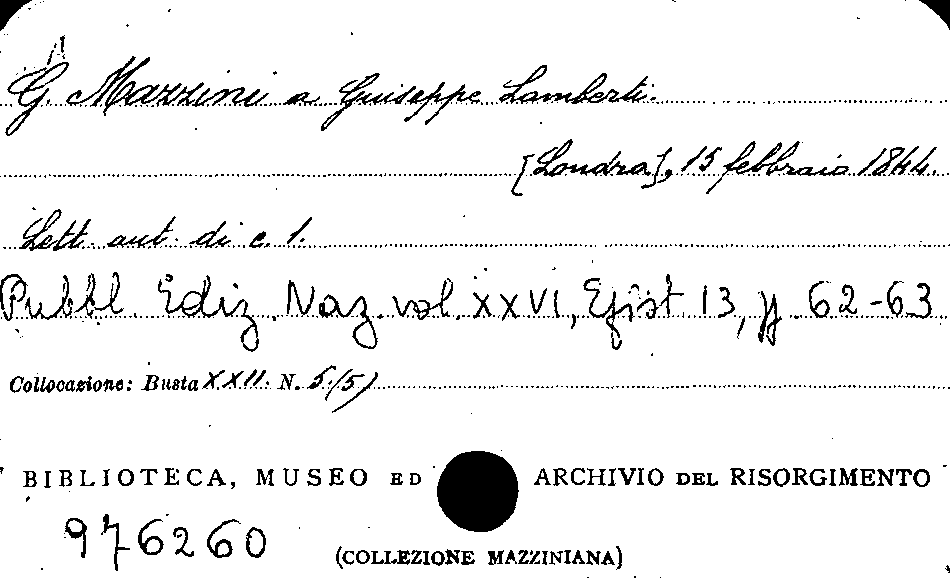 G. Mazzini a Giuseppe Lamberti.
[Londra], 15 febbraio 1844.
Lett. aut. di c. 1.
Pubbl. Ediz. Naz. vol. XXVI, Epist. 13, pp. 62-63
Collocazione: Busta XXII. N. 5/(5)
BIBLIOTECA, MUSEO ED ARCHIVIO DEL RISORGIMENTO
976260
(COLLEZIONE MAZZINIANA)